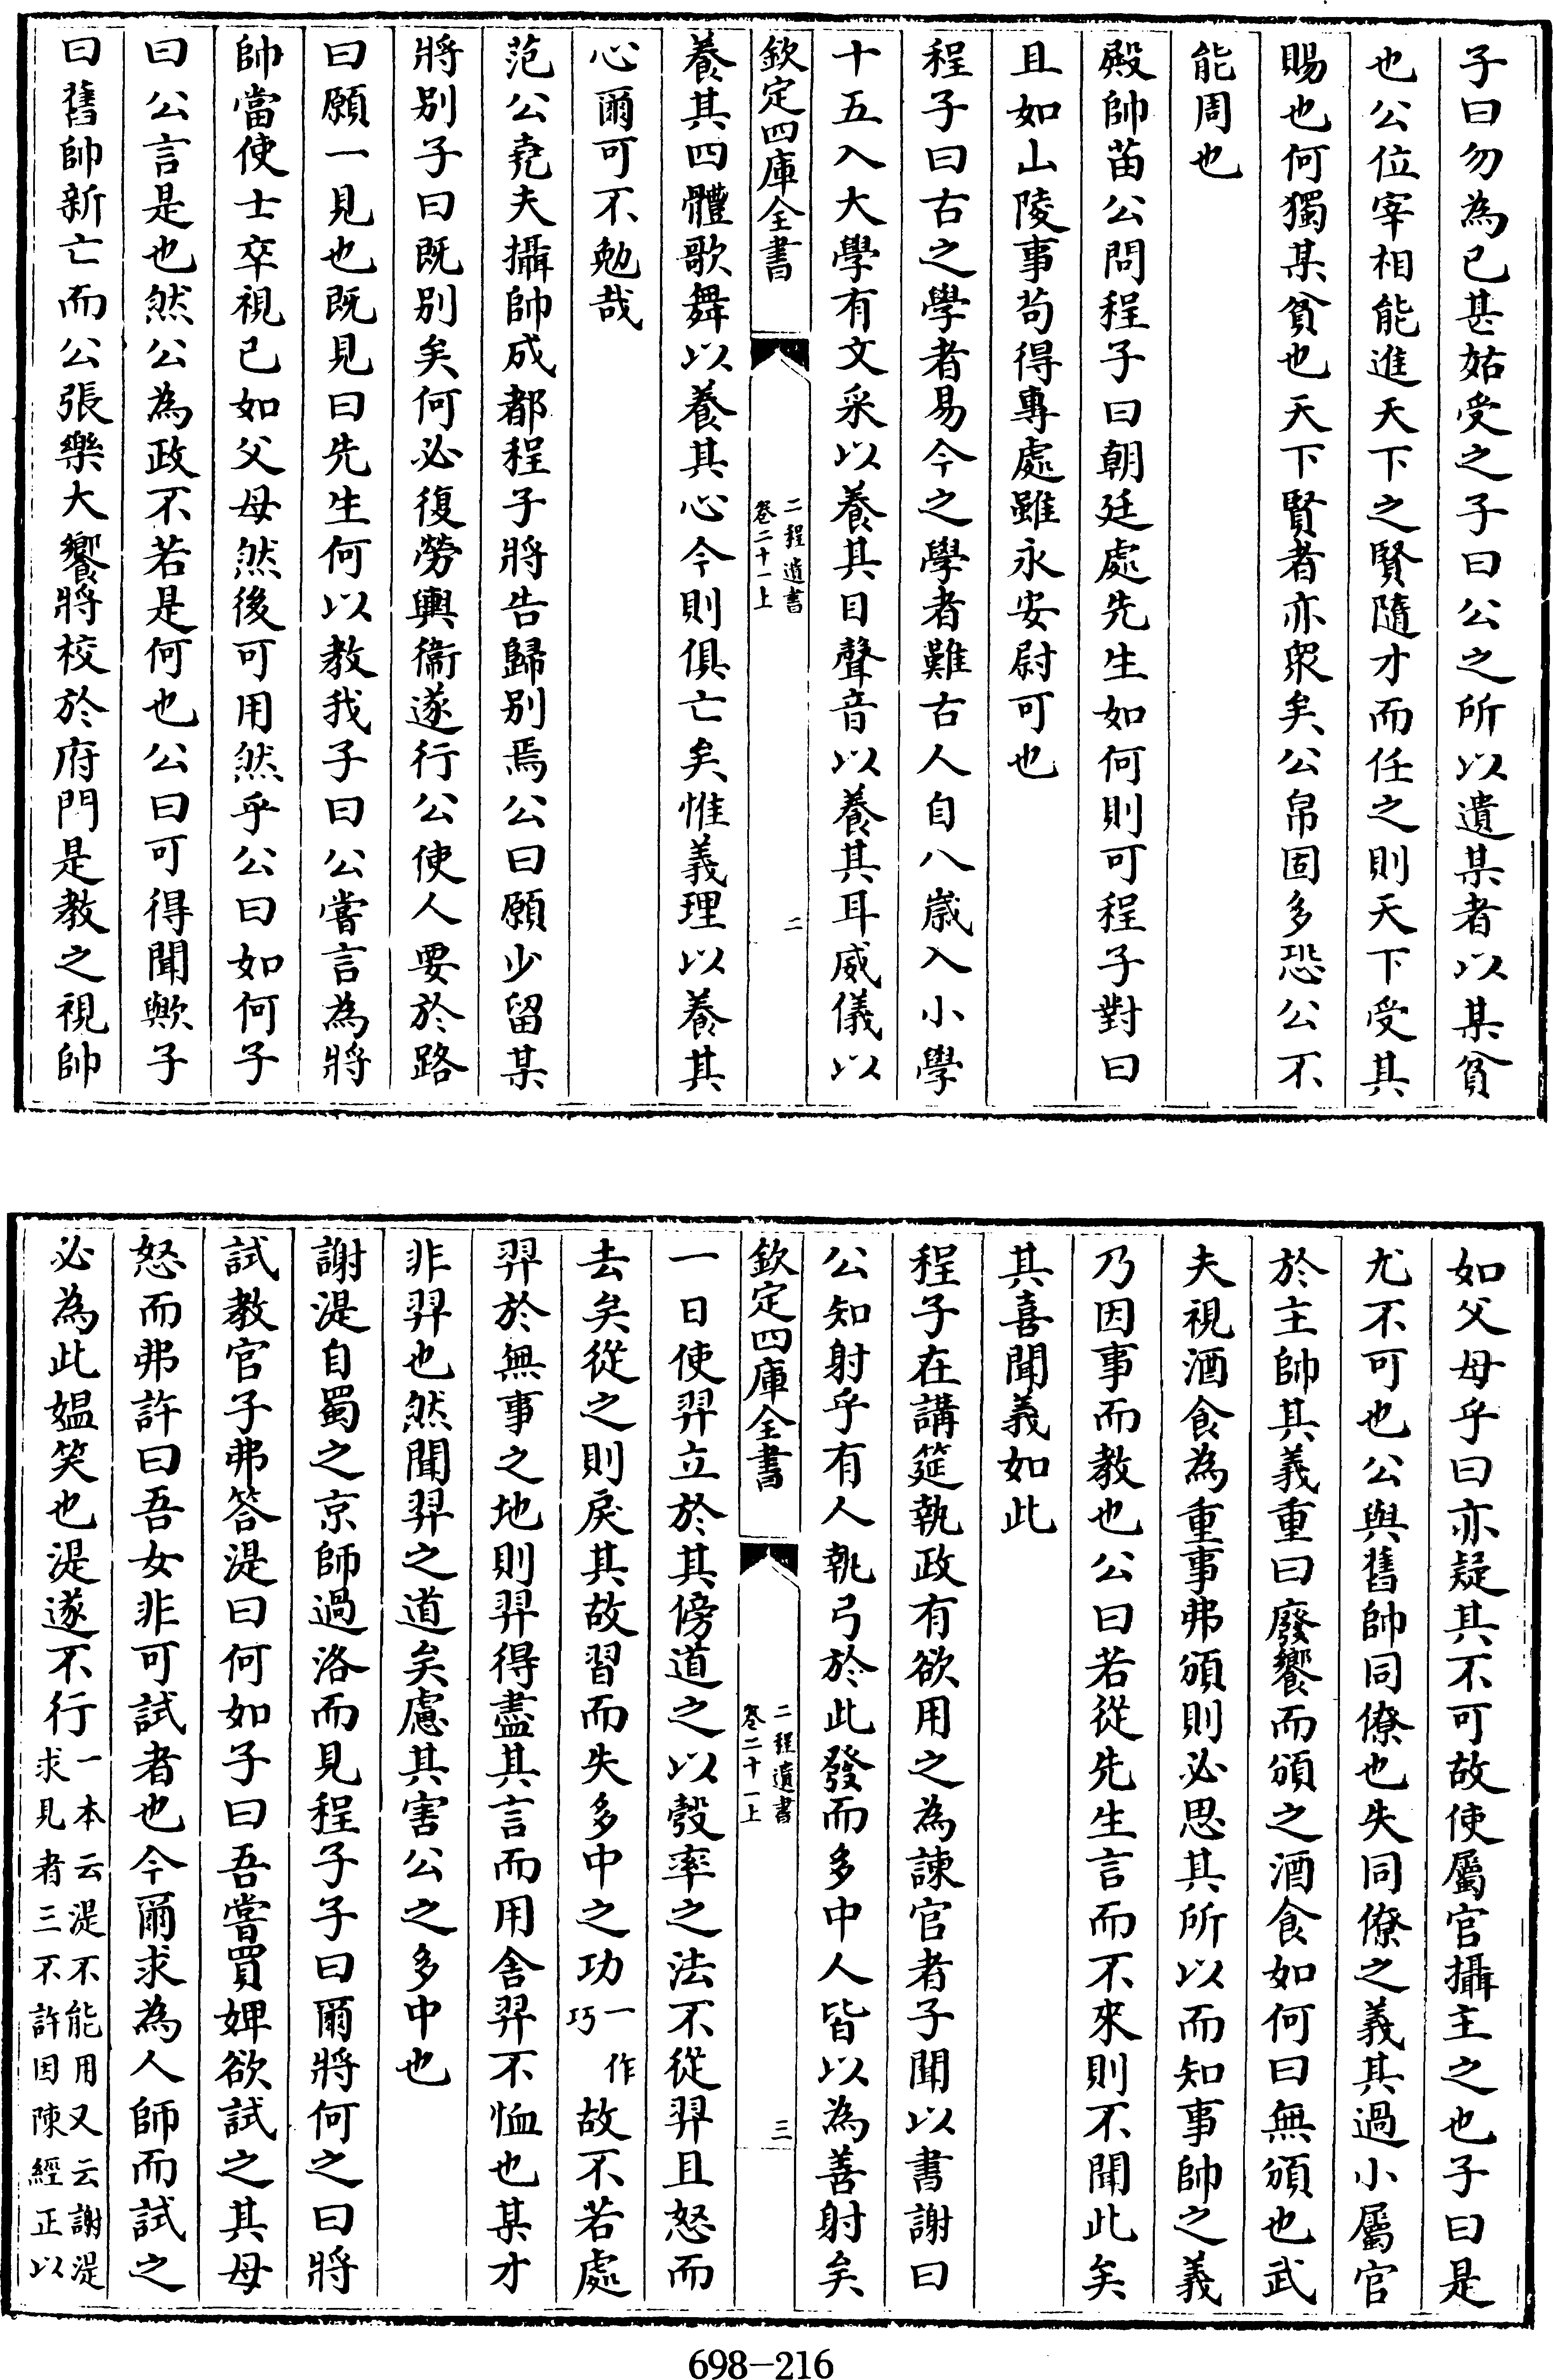 子曰勿為已甚姑受之子曰公之所以遺某者以某貧
也公位宰相能進天下之賢隨才而任之則天下受其
賜也何獨某貧也天下賢者亦衆矣公帛固多恐公不
能周也
殿帥苗公問程子曰朝廷處先生如何則可程子對曰
且如山陵事苟得專處雖永安尉可也
程子曰古之學者易今之學者難古人自八歲入小學
十五入大學有文采以養其目聲音以養其耳威儀以
欽定四庫全書
二程遺書
卷二十一上
二
養其四體歌舞以養其心今則俱亡矣惟義理以養其
心爾可不勉哉
范公堯夫攝帥成都程子將告歸別焉公曰願少留某
將別子曰既別矣何必復勞輿衞遂行公使人要於路
曰願一見也既見曰先生何以教我子曰公嘗言為將
帥當使士卒視己如父母然後可用然乎公曰如何子
曰公言是也然公為政不若是何也公曰可得聞歟子
曰舊帥新亡而公張樂大饗將校於府門是教之視帥
如父母乎曰亦疑其不可故使屬官攝主之也子曰是
尤不可也公與舊帥同僚也失同僚之義其過小屬官
於主帥其義重曰廢饗而頒之酒食如何曰無頒也武
夫視酒食為重事弗頒則必思其所以而知事帥之義
乃因事而教也公曰若從先生言而不來則不聞此矣
其喜聞義如此
程子在講筵執政有欲用之為諫官者子聞以書謝曰
公知射乎有人執弓於此發而多中人皆以為善射矣
欽定四庫全書
二程遺書
卷二十一上
三
一日使羿立於其傍道之以彀率之法不從羿且怒而
去矣從之則戾其故習而失多中之功一作巧故不若處
羿於無事之地則羿得盡其言而用舍羿不恤也某才
非羿也然聞羿之道矣慮其害公之多中也
謝湜自蜀之京師過洛而見程子子曰爾將何之曰將
試教官子弗答湜曰何如子曰吾嘗買婢欲試之其母
怒而弗許曰吾女非可試者也今爾求為人師而試之
必為此媪笑也湜遂不行一本云湜不能用又云謝湜求見者三不許因陳經正以
698-216